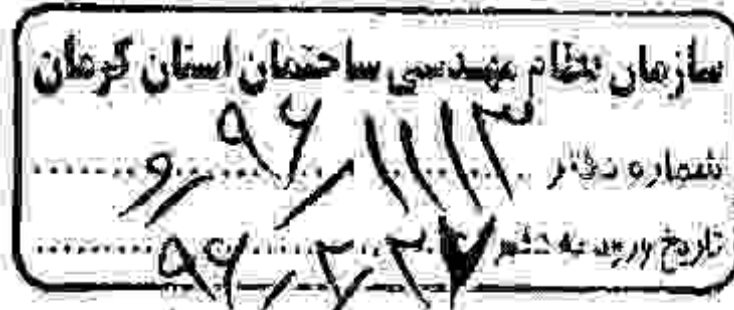 سازمان نظام مهندسی ساختمان استان کرمان
شماره دفتر ۹۶/۱۱۱۳/و
تاریخ ورود به دفتر ۹۶/۲/۲۷